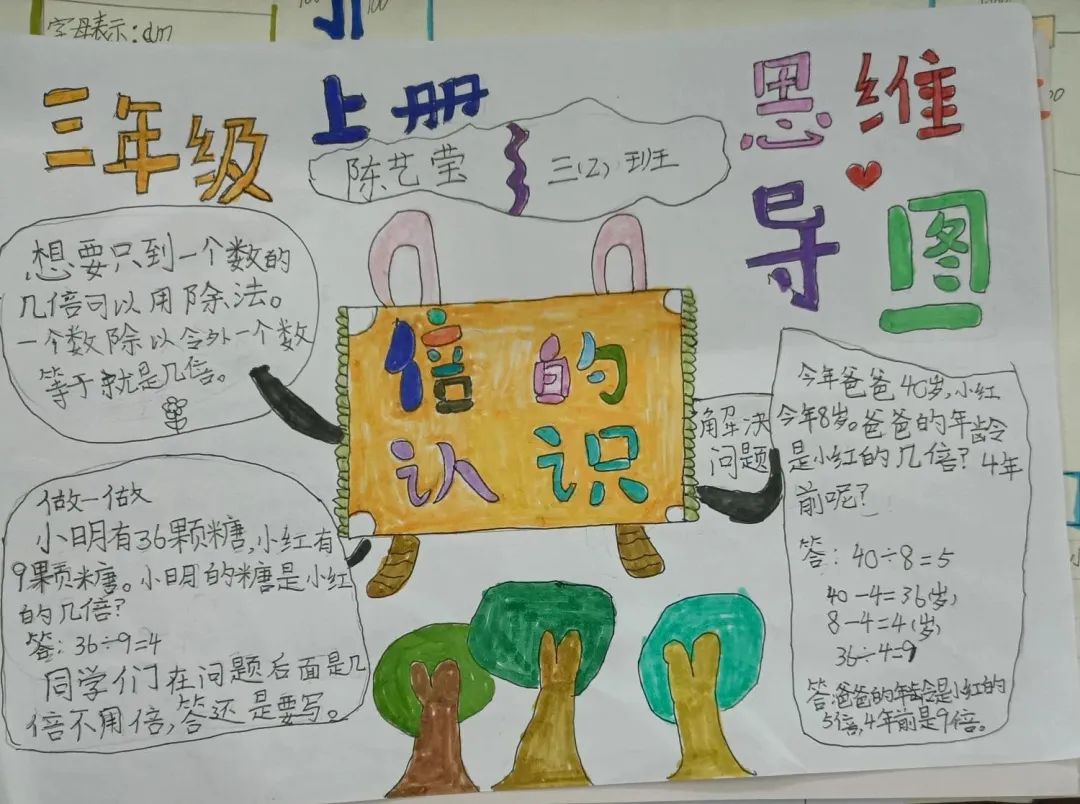 字母表示:dm
三年级
上册
陈艺莹
三(2)班
思维
导图
想要只到一个数的
几倍可以用除法。
一个数除以令外一个数
等于就是几倍。
倍的
认识
做一做
小明有36颗糖,小红有
9颗糖。小明的糖是小红
的几倍?
答:36÷9=4
同学们在问题后面是几
倍不用倍,答还是要写。
解决
问题
今年爸爸40岁,小红
今年8岁。爸爸的年龄
是小红的几倍?4年
前呢?
答:40÷8=5
40-4=36(岁)
8-4=4(岁)
36÷4=9
答:爸爸的年龄是小红的
5倍,4年前是9倍。